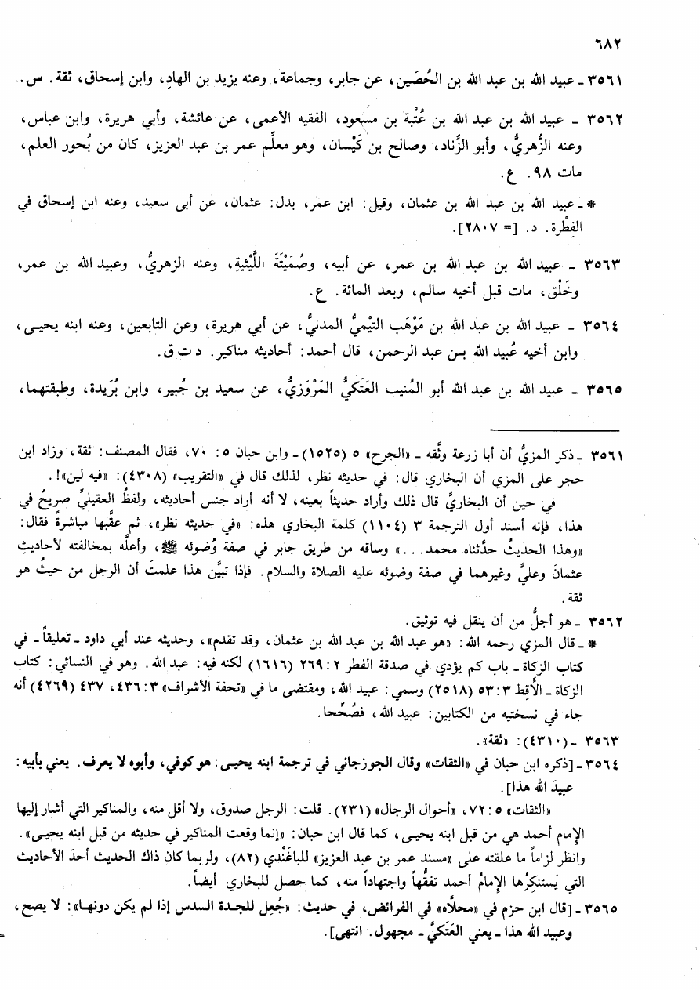 ٦٨٢
٣٥٦١ ـ عبيد الله بن عبد الله بن الحُصَين، عن جابر، وجماعة، وعنه يزيد بن الهادِ، وابن إسحاق، ثقة. س.
٣٥٦٢ ـ عبيد الله بن عبد الله بن عُتْبة بن مسعود، الفقيه الأعمى، عن عائشة، وأبي هريرة، وابن عباس،
وعنه الزُهريُّ، وأبو الزِّناد، وصالح بن كَيْسان، وهو معلِّم عمر بن عبد العزيز، كان من بُحور العلم،
مات ٩٨. ع.
* ـ عبيد الله بن عبد الله بن عثمان، وقيل: ابن عمر، بدل: عثمان، عن أبي سعيد، وعنه ابن إسحاق في
الفِطْرة. د. [= ٢٨٠٧].
٣٥٦٣ ـ عبيد الله بن عبد الله بن عمر، عن أبيه، وصُمَيْتَةَ اللَّيْثية، وعنه الزهريُّ، وعبيد الله بن عمر،
وخَلْق، مات قبل أخيه سالم، وبعد المائة. ع.
٣٥٦٤ ـ عبيد الله بن عبد الله بن مَوْهَب التيْميُّ المدنيُّ، عن أبي هريرة، وعن التابعين، وعنه ابنه يحيى،
وابن أخيه عُبيد الله بن عبد الرحمن، قال أحمد: أحاديثه مناكير. د ت ق.
٣٥٦٥ ـ عبيد الله بن عبد الله أبو المُنيب العَتَكيُّ المَرْوَزيُّ، عن سعيد بن جُبير، وابن بُرَيدة، وطبقتهما،
٣٥٦١ ـ ذكر المزيُّ أن أبا زرعة وثَّقه ـ «الجرح» ٥ (١٥٢٥) ـ وابن حبان ٥: ٧٠، فقال المصنف: ثقة، وزاد ابن
حجر على المزي أن البخاري قال: في حديثه نظر، لذلك قال في «التقريب» (٤٣٠٨): «فيه لين»!.
في حين أن البخاريَّ قال ذلك وأراد حديثاً بعينه، لا أنه أراد جنس أحاديثه، ولفظُ العقيليِّ صريحٌ في
هذا، فإنه أسند أول الترجمة ٣ (١١٠٤) كلمة البخاري هذه: «في حديثه نظر»، ثم عقَّبها مباشرةً فقال:
«وهذا الحديثُ حدَّثناه محمد...» وساقه من طريق جابر في صفة وُضوئه ﷺ، وأعلَّه بمخالفته لأحاديثِ
عثمانَ وعليٍّ وغيرهما في صفة وضوئه عليه الصلاة والسلام. فإذا تبيَّن هذا علمتَ أن الرجل من حيثُ هو
ثقة.
٣٥٦٢ ـ هو أجلُّ من أن ينقل فيه توثيق.
* ـ قال المزي رحمه الله: «هو عبد الله بن عبد الله بن عثمان، وقد تقدم»، وحديثه عند أبي داود ـ تعليقاً ـ في
كتاب الزكاة ـ باب كم يؤدي في صدقة الفطر ٢: ٢٦٩ (١٦١٦) لكنه فيه: عبد الله. وهو في النسائي: كتاب
الزكاة ـ الأَقِط ٣: ٥٣ (٢٥١٨) وسمي: عبيد الله، ومقتضى ما في «تحفة الأشراف» ٣: ٤٣٦، ٤٣٧ (٤٢٦٩) أنه
جاء في نسختيه من الكتابين: عبيد الله، فصُحِّحا.
٣٥٦٣ ـ (٤٣١٠): «ثقة».
٣٥٦٤ ـ [ذكره ابن حبان في «الثقات» وقال الجوزجاني في ترجمة ابنه يحيى: هو كوفي، وأبوه لا يعرف. يعني بأبيه:
عبيدَ الله هذا].
«الثقات» ٥: ٧٢، «أحوال الرجال» (٢٣١). قلت: الرجل صدوق، ولا أقل منه، والمناكير التي أشار إليها
الإمام أحمد هي من قبل ابنه يحيى، كما قال ابن حبان: «إنما وقعت المناكير في حديثه من قبل ابنه يحيى».
وانظر لزاماً ما علقته على «مسند عمر بن عبد العزيز» للباغَندي (٨٢)، ولربما كان ذاك الحديث أحدَ الأحاديث
التي يستنكِرُها الإمامُ أحمد تفقُّهاً واجتهاداً منه، كما حصل للبخاري أيضاً.
٣٥٦٥ ـ [قال ابن حزم في «محلّاه» في الفرائض، في حديث: «جُعِل للجدة السدس إذا لم يكن دونها»: لا يصح،
وعبيد الله هذا ـ يعني العَتَكيَّ ـ مجهول. انتهى].